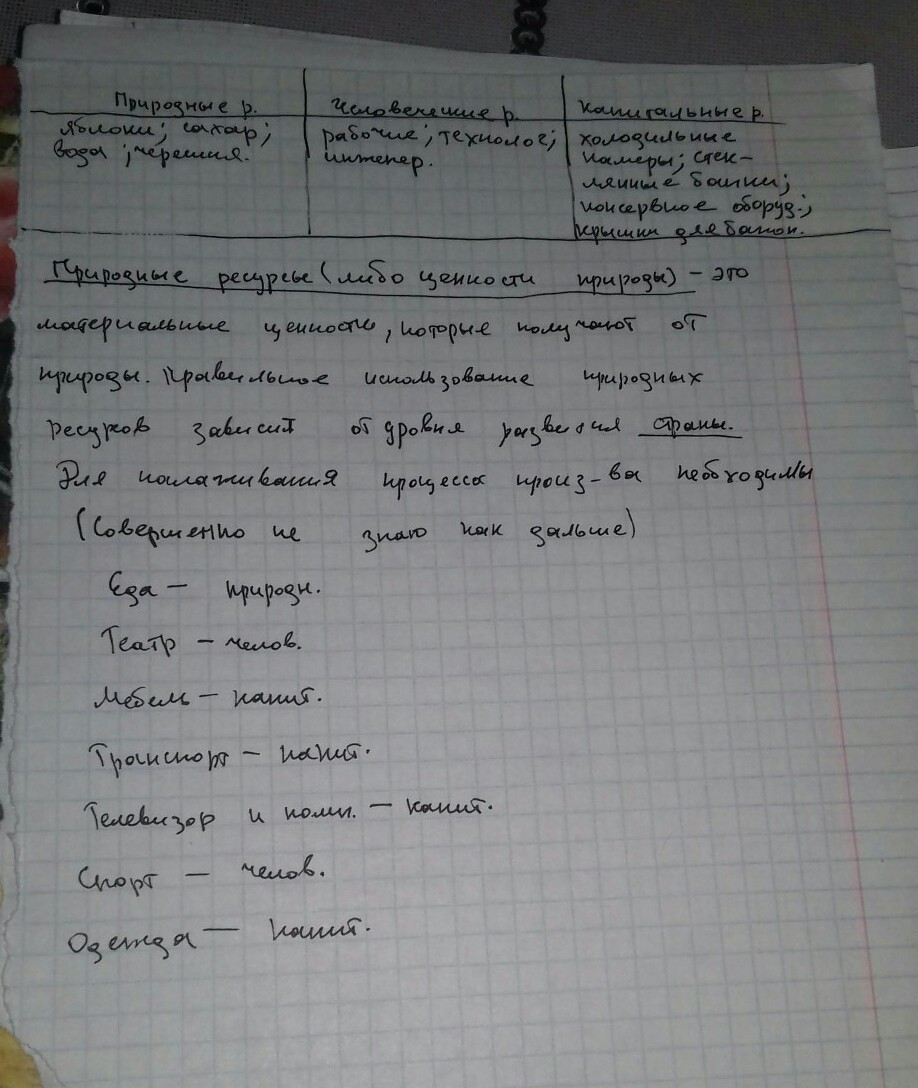 Природные р. Человеческие р. Капитальные р.
яблоки; сахар; рабочие; технолог; холодильные
вода; черешня. инженер. камеры; стек-
лянные банки;
консервное оборуд.;
крышки для банок.
Природные ресурсы (либо ценности природы) - это
материальные ценности, которые получают от
природы. Правильное использование природных
ресурсов зависит от уровня развития страны.
Для налаживания процесса произ-ва необходимы
(Совершенно не знаю как дальше)
Еда - природн.
Театр - челов.
Мебель - капит.
Транспорт - капит.
Телевизор и комп. - капит.
Спорт - челов.
Одежда - капит.